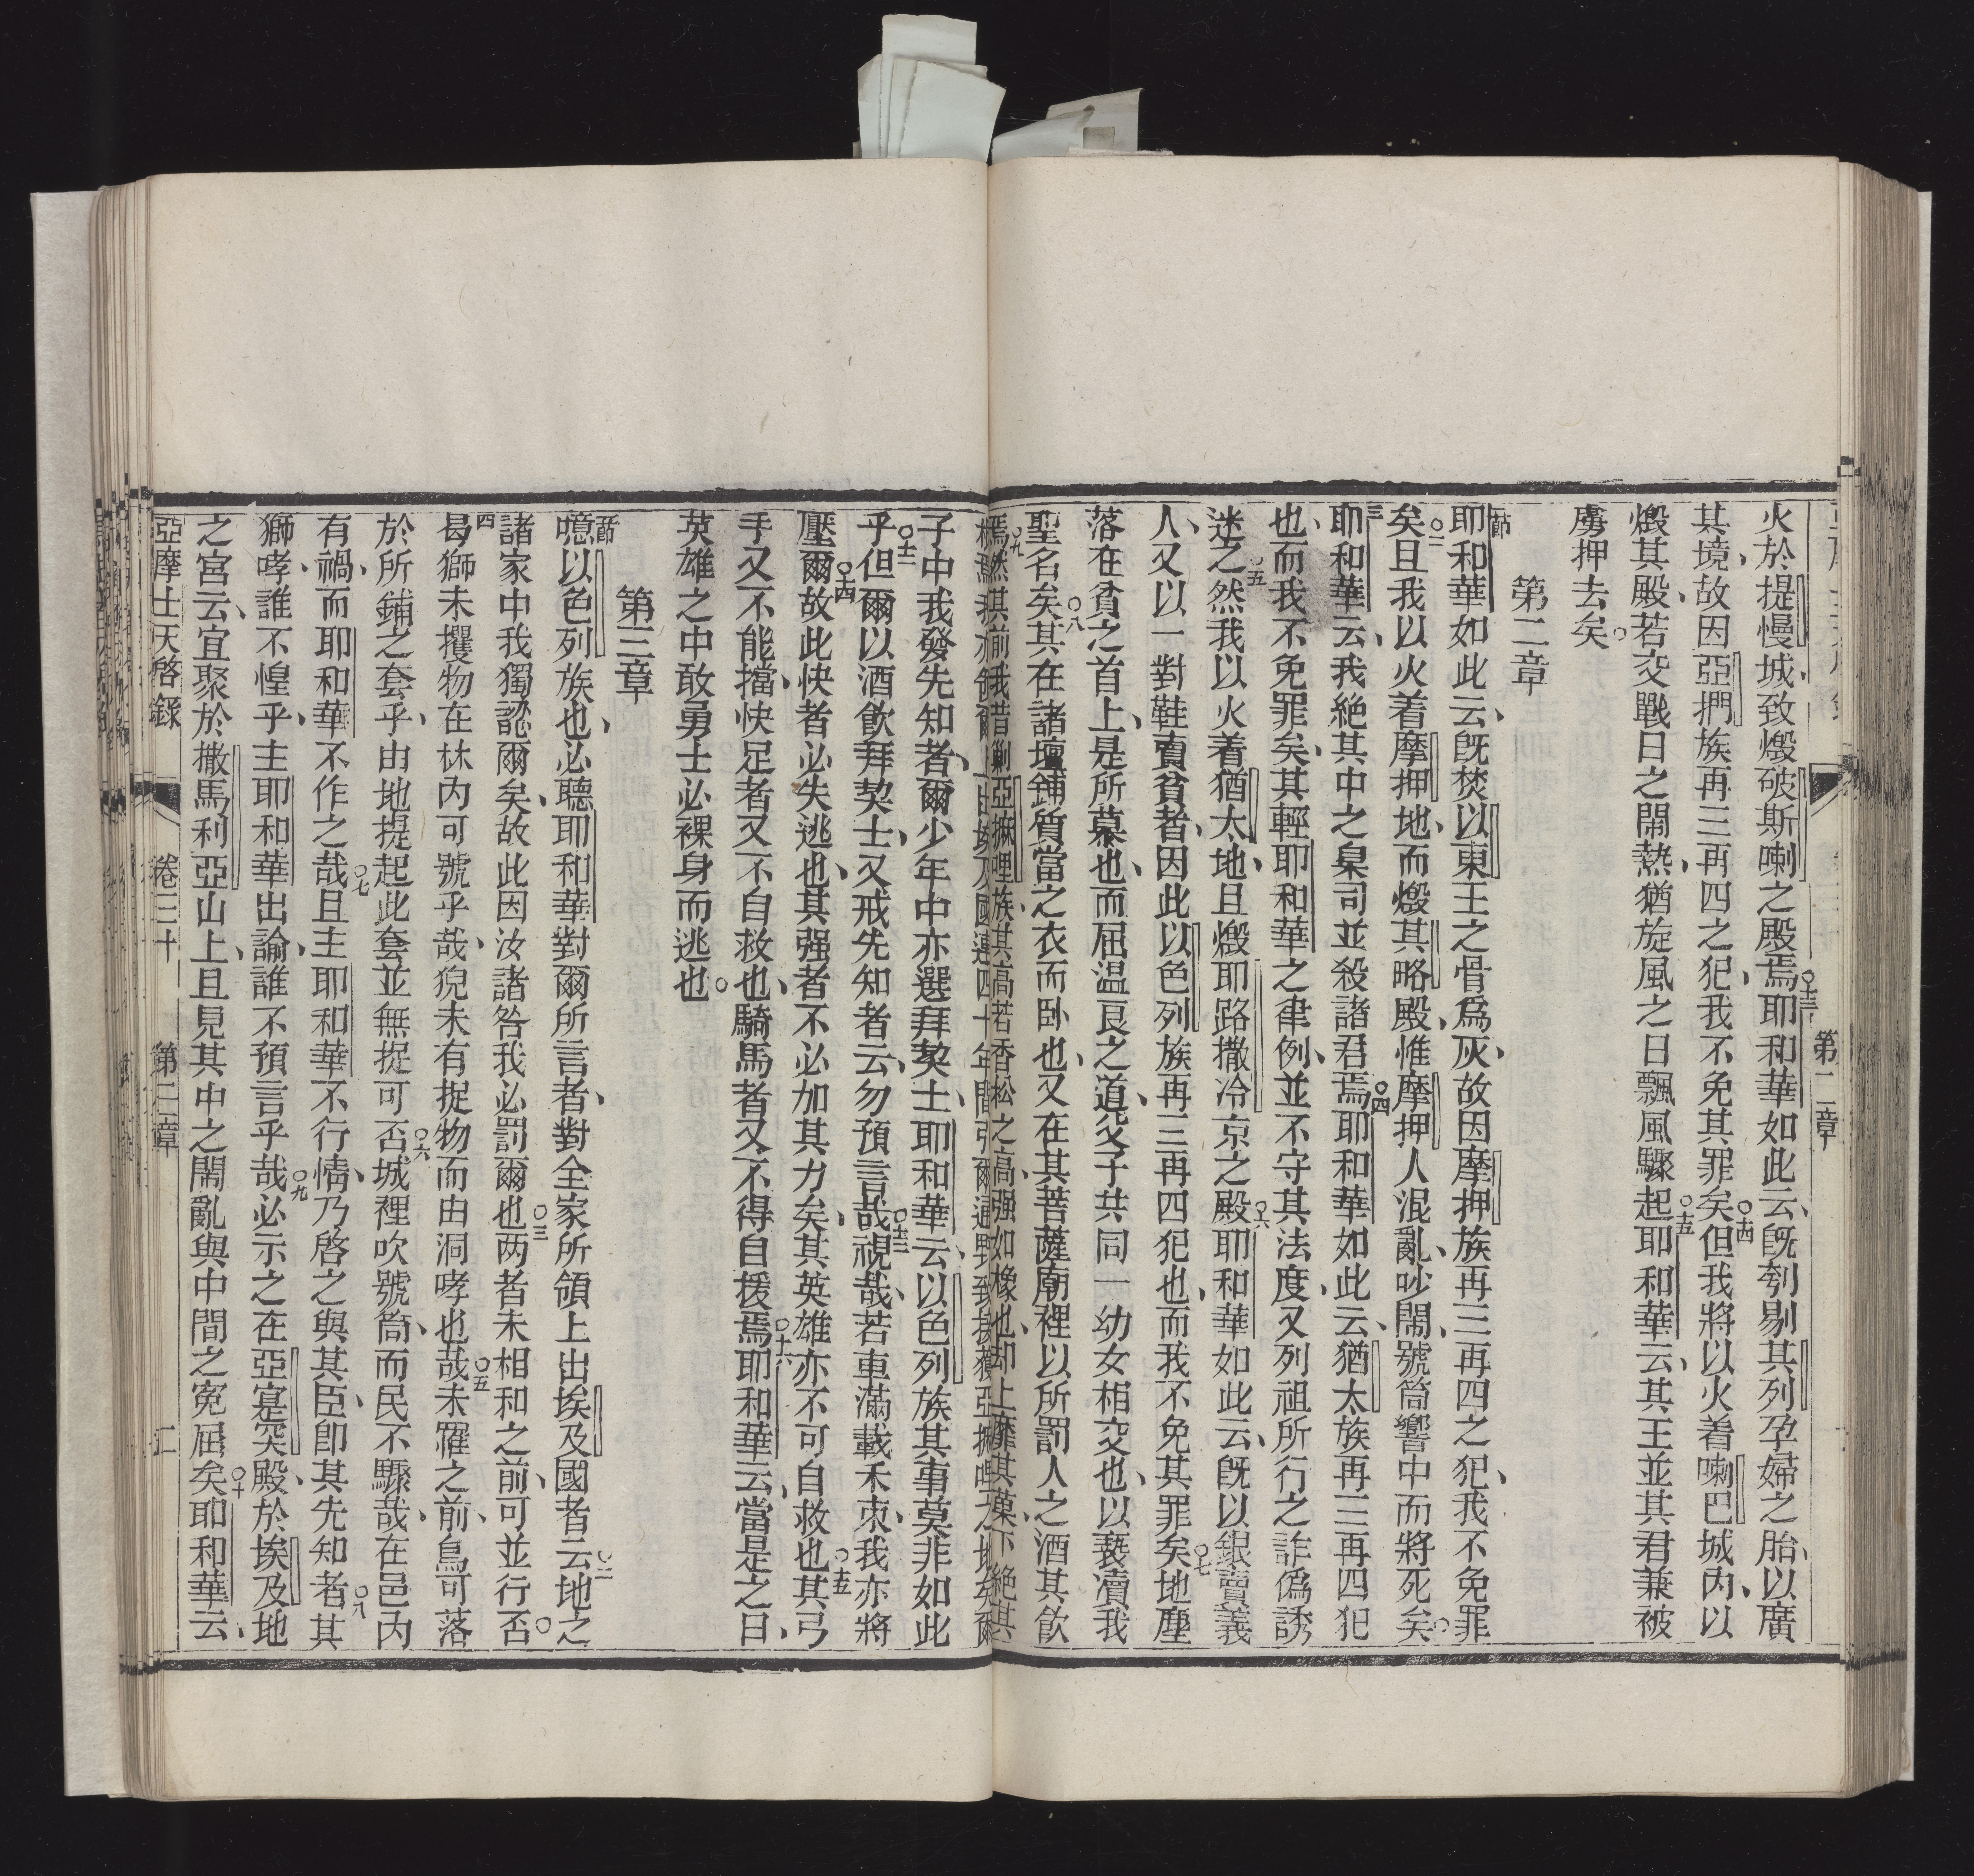 火於提慢城、致燬破斯喇之殿焉。○十三耶和華如此云、旣刳剔其列孕婦之胎、以廣
其境、故因亞捫族再三再四之犯、我不免其罪矣。○十四但我將以火着喇巴城內、以
燬其殿、若交戰日之鬧熱、猶旋風之日飄風驟起。○十五耶和華云、其王並其君兼被
虜押去矣。○
第二章
一節耶和華如此云、旣焚以東王之骨爲灰、故因摩押族再三再四之犯、我不免罪
矣。○二且我以火着摩押地、而燬其略殿、惟摩押人混亂、吵鬧、號筒響中而將死矣。○
三耶和華云、我絕其中之臬司並殺諸君焉。○四耶和華如此云、猶太族再三再四犯
也、而我不免罪矣、其輕耶和華之律例、並不守其法度、又列祖所行之詐僞誘
迷之。○五然我以火着猶太地、且燬耶路撒冷京之殿。○六耶和華如此云、旣以銀賣義
人、又以一對鞋賣貧者、因此以色列族再三再四犯也、而我不免其罪矣。○七地塵
落在貧之首上、是所慕也、而屈温良之道、父子共同一幼女相交也、以褻瀆我
聖名矣。○八其在諸壇鋪質當之衣而卧也、又在其菩薩廟裡以所罰人之酒其飲
焉。○九然其前我昔剿亞摭哩族、其高若香松之高、强如橡也、却上靡其菓、下絕其
根焉、我亦領爾由埃及國、連四十年間引爾通野、致接獲亞摭哩之地矣、爾
子中我發先知者、爾少年中亦選拜契士、耶和華云、以色列族其事莫非如此
乎。○十二但爾以酒飲拜契士、又戒先知者云、勿預言哉。○十三視哉、若車滿載禾束、我亦將
壓爾。○十四故此快者必失逃也、其强者不必加其力矣、其英雄亦不可自救也。○十五其弓
手又不能擋、快足者又不自救也、騎馬者又不得自援焉。○十六耶和華云、當是之日、
英雄之中敢勇士必裸身而逃也。○
第三章
一節噫、以色列族也、必聽耶和華對爾所言者、對全家所領上出埃及國者云。○二地之
諸家中我獨認爾矣、故此因汝諸咎我必罰爾也。○三两者未相和之前、可並行否。○
四曷獅未攫物在林內可號乎哉、猊未有捉物而由洞哮也哉。○五未羅之前、鳥可落
於所鋪之套乎、由地提起此套並無捉可否。○六城裡吹號筒、而民不驟哉、在邑內
有禍、而耶和華不作之哉。○七且主耶和華不行情、乃啓之與其臣、卽其先知者。○八其
獅哮誰不惶乎、主耶和華出諭、誰不預言乎哉。○九必示之在亞寔突殿、於埃及地
之宮云、宜聚於撒馬利亞山上、且見其中之鬧亂與中間之寃屈矣。○十耶和華云、
亞摩士天啓錄　卷三十　第三章　二